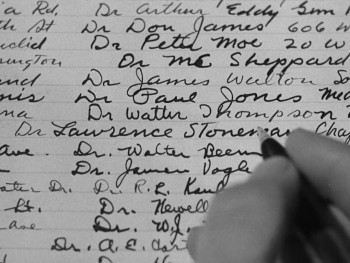 Rd. Dr Arthur "Eddy" Gum
St Dr Don James 606 W
Dr Peter Moe 20 W
Dr Mc Sheppard
Dr James Walton So
Dr Paul Jones
Dr Walter Thompson
Dr Lawrence Stoneman Chap
ave. Dr. Walter Beem
Dr. James Vogle
Dr. Dr. R. L. Kau
St. Dr. Newell
ave Dr. W. J.
Dr. A. E. Cart